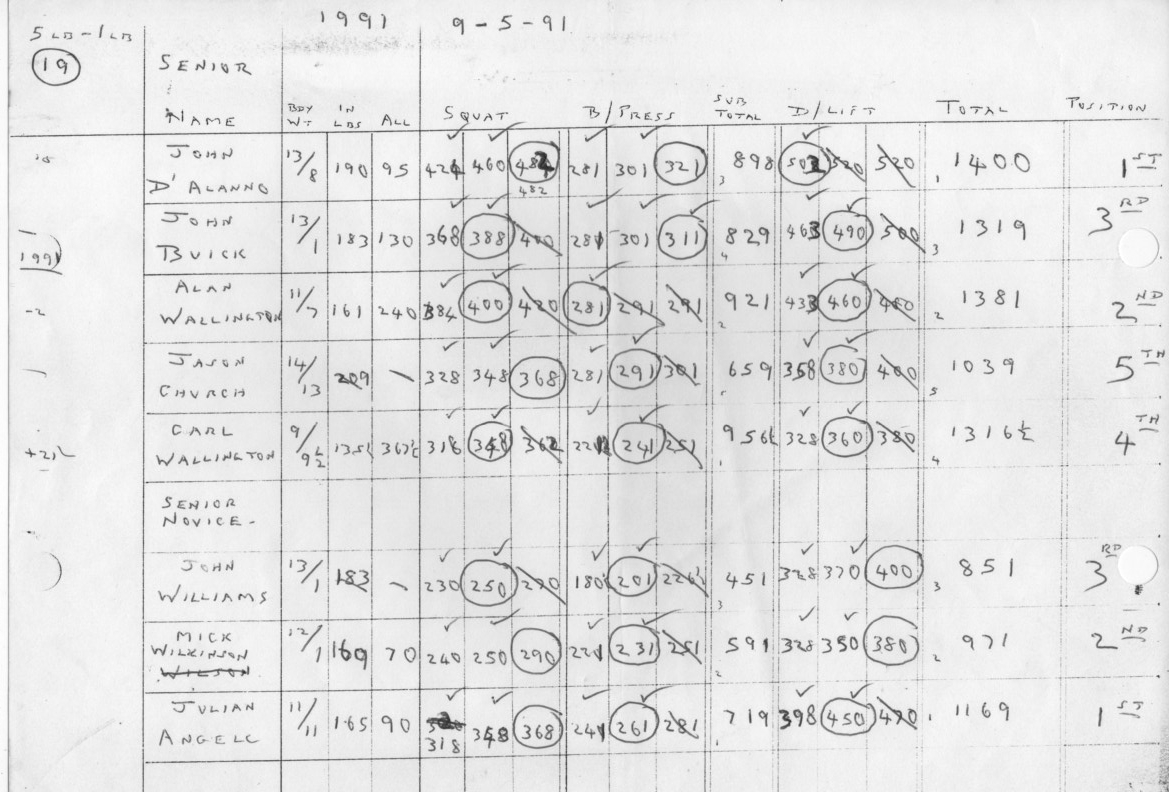 1991 9-5-91
5 LB - 1 LB
19
SENIOR
NAME BDY WT IN LBS ALL SQUAT B/PRESS SUB TOTAL D/LIFT TOTAL POSITION
JOHN D'ALANNO 13/8 190 95 424 460 482 281 301 321 3 898 502 520 520 1 1400 1ST
482
JOHN BUICK 13/1 183 130 368 388 400 281 301 311 4 829 463 490 500 3 1319 3RD
1991
ALAN WALLINGTON 11/7 161 240 384 400 420 281 291 291 2 921 433 460 460 2 1381 2ND
-2
JASON CHURCH 14/13 209 - 328 348 368 281 291 301 659 358 380 400 5 1039 5TH
CARL WALLINGTON 9/9½ 135½ 367½ 318 348 362 241 251 1 956½ 328 360 380 4 1316½ 4TH
+21
SENIOR
NOVICE-
JOHN WILLIAMS 13/1 183 - 230 250 270 180 201 226½ 3 451 328 370 400 3 851 3RD
MICK WILKINSON WILSON 12/1 169 70 240 250 290 221 231 251 2 591 328 350 380 2 971 2ND
JULIAN ANGELL 11/11 165 90 318 348 368 241 261 281 1 719 398 450 470 1 1169 1ST